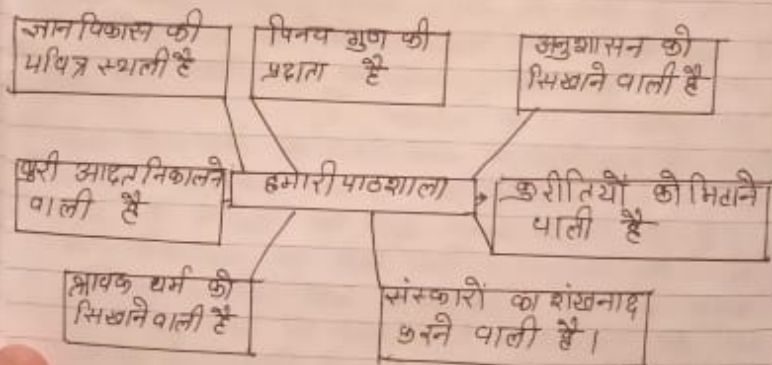 ज्ञान विकास की
पवित्र स्थली है
विनय गुण की
प्रदाता है
अनुशासन को
सिखाने वाली है
बुरी आदत निकालने
वाली है
हमारी पाठशाला
कुरीतियों को मिटाने
वाली है
श्रावक धर्म को
सिखाने वाली है
संस्कारों का शंखनाद
करने वाली है।